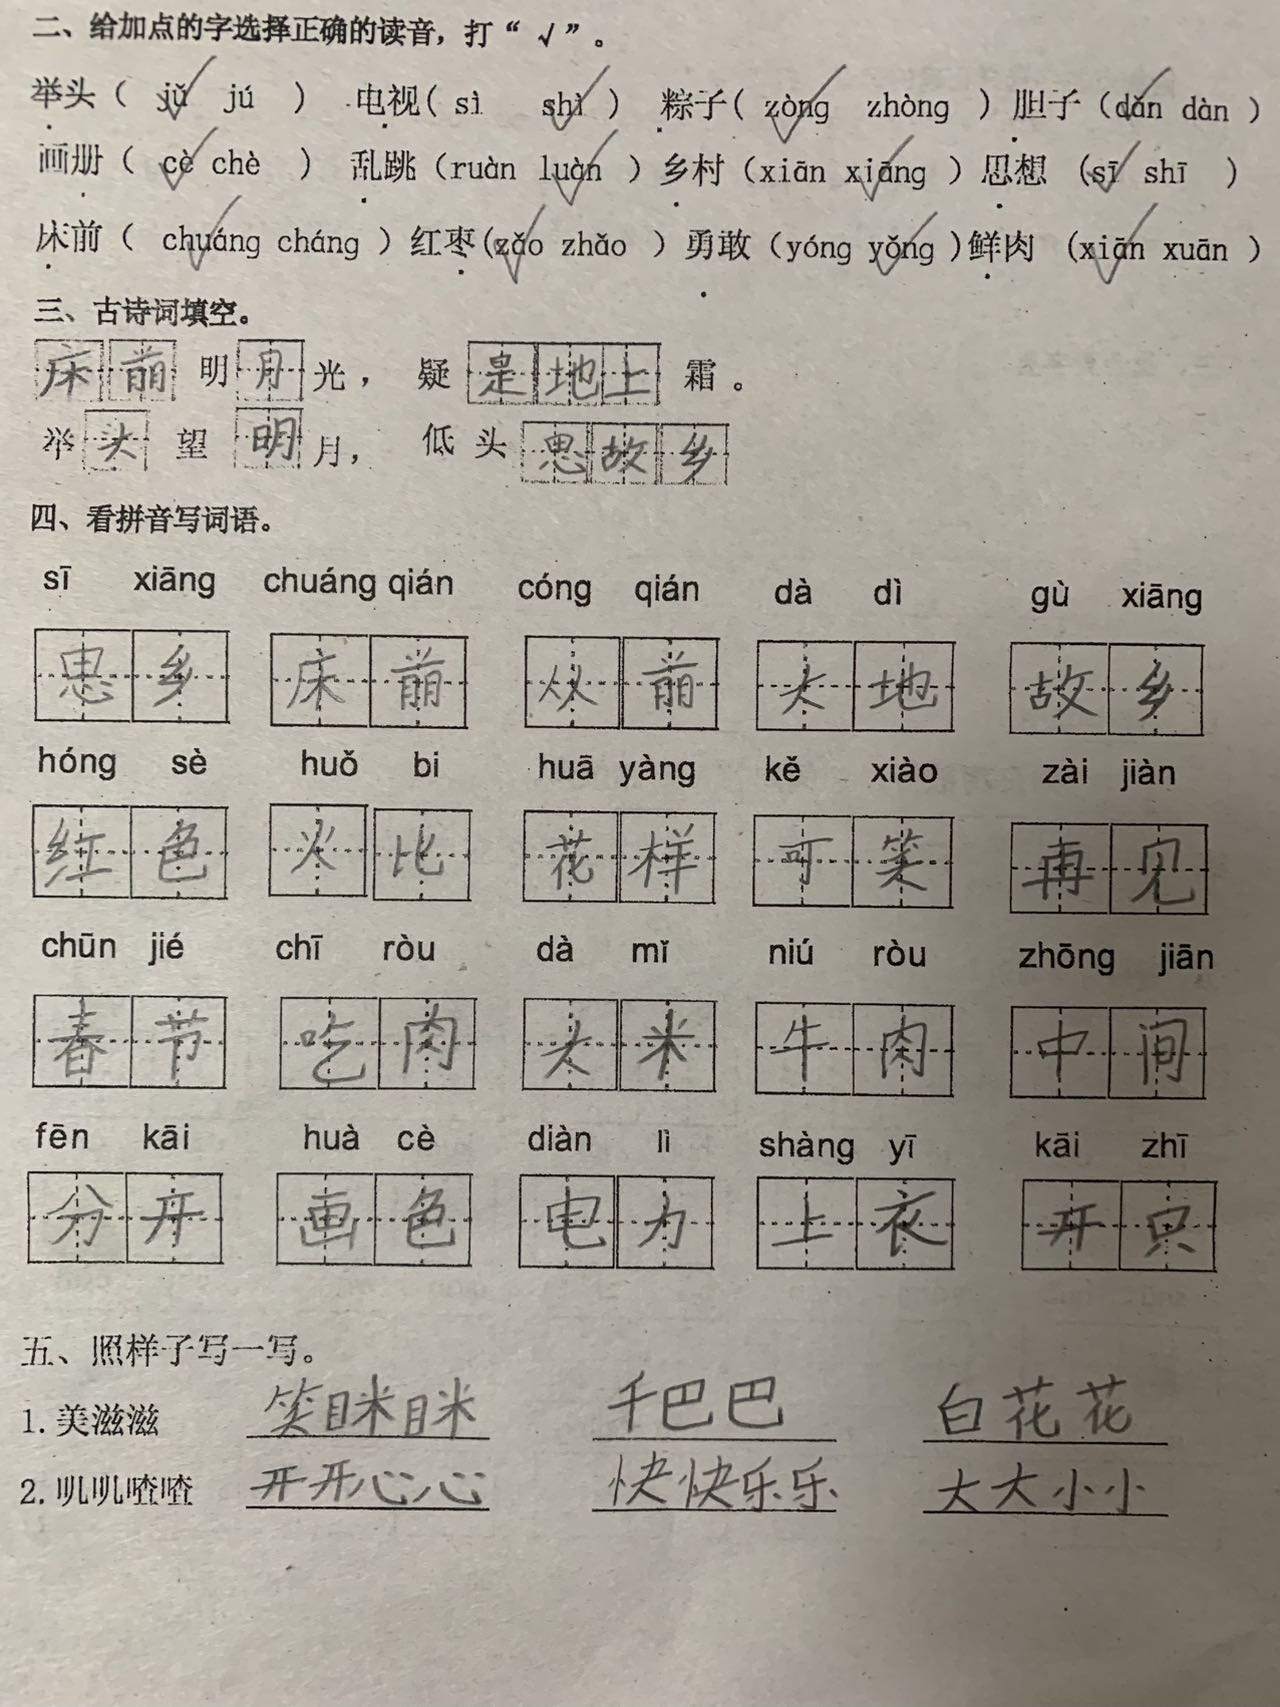 二、给加点的字选择正确的读音，打“√”。
举头（ jǔ√ jú ） 电视( sì shì√ ) 粽子( zòng√ zhòng ) 胆子（dǎn√ dàn ）
画册（ cè√ chè ） 乱跳（ruàn luàn√ ）乡村（xiān xiāng√ ）思想 (sī√ shī )
床前（ chuáng√ cháng ）红枣(zǎo√ zhǎo ）勇敢（yóng yǒng√ )鲜肉 (xiān√ xuān ）
三、古诗词填空。
床前明月光，疑是地上霜。
举头望明月，低头思故乡
四、看拼音写词语。
sī xiāng chuáng qián cóng qián dà dì gù xiāng
思乡 床前 从前 大地 故乡
hóng sè huǒ bi huā yàng kě xiào zài jiàn
红色 火比 花样 可笑 再见
chūn jié chī ròu dà mǐ niú ròu zhōng jiān
春节 吃肉 大米 牛肉 中间
fēn kāi huà cè diàn lì shàng yī kāi zhī
分开 画色 电力 上衣 开只
五、照样子写一写。
1.美滋滋 笑眯眯 千巴巴 白花花
2.叽叽喳喳 开开心心 快快乐乐 大大小小